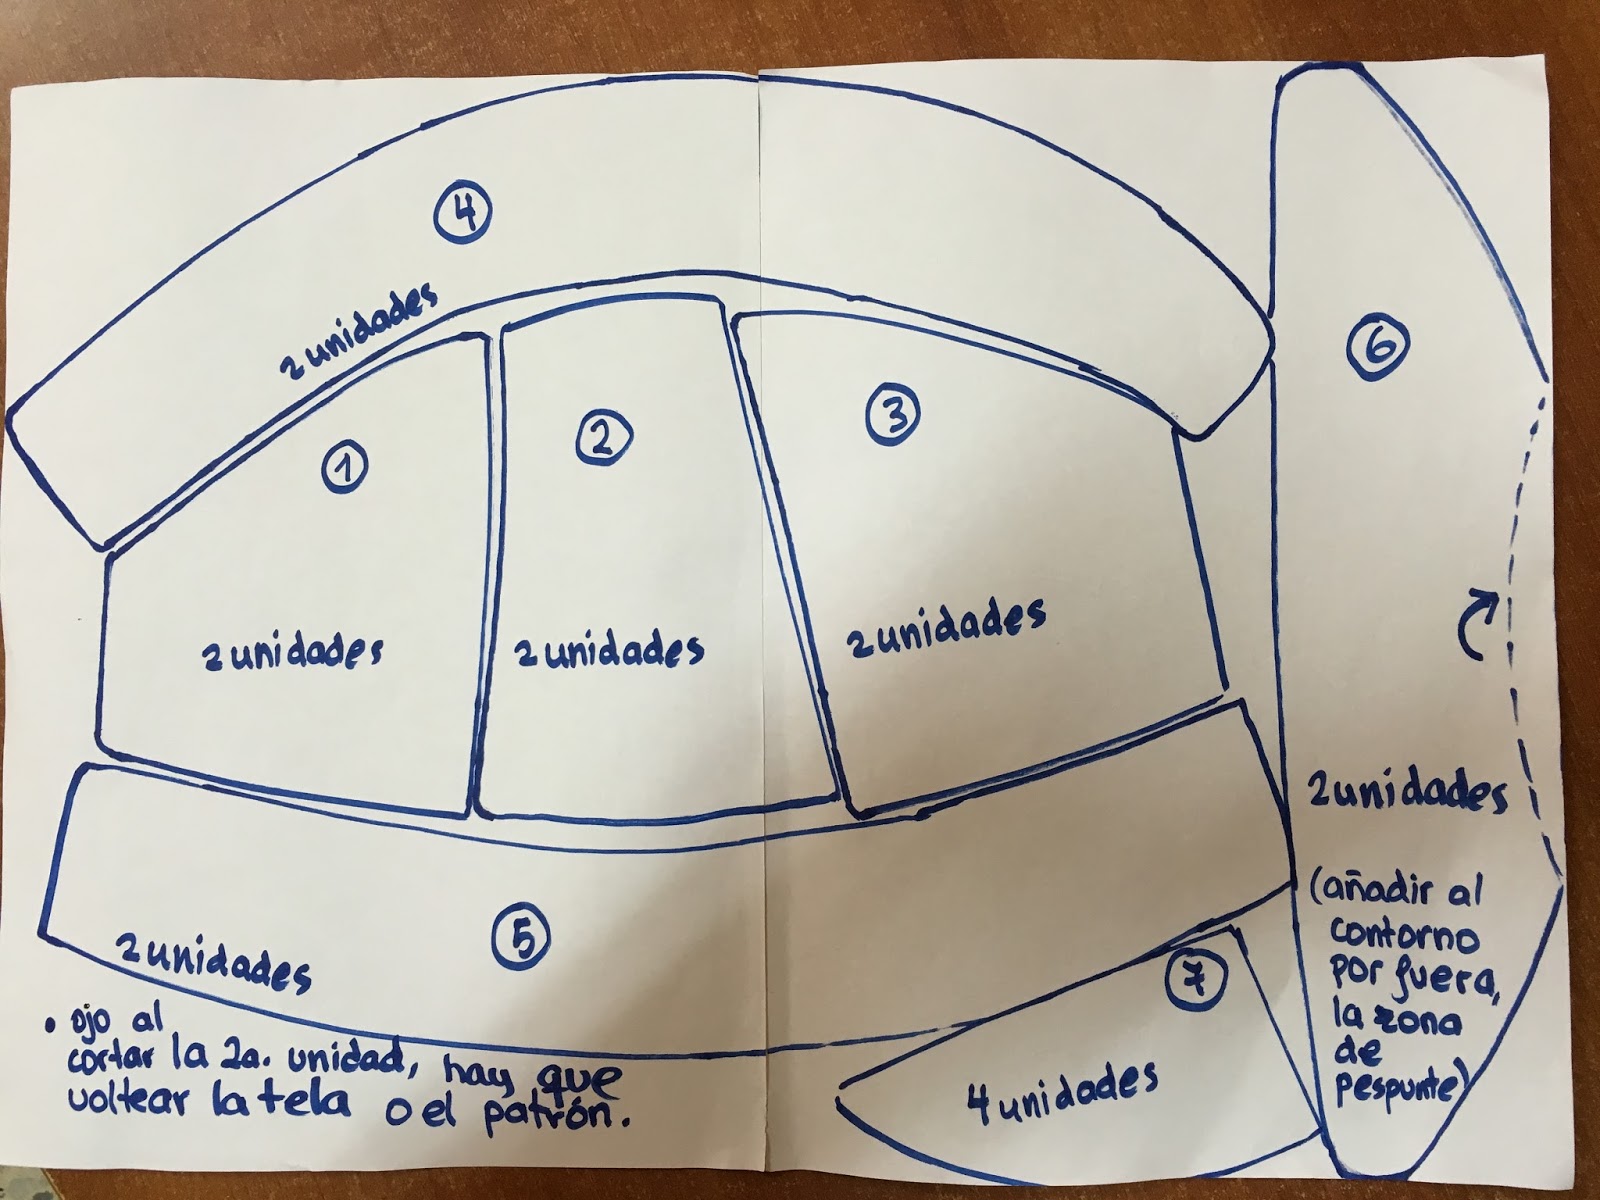 4
2 unidades
1
2 unidades
2
2 unidades
3
2 unidades
5
2 unidades
• ojo al
cortar la 2a. unidad, hay que
voltear la tela o el patrón.
6
2 unidades
(añadir al
contorno
por fuera,
la zona
de
pespunte)
7
4 unidades